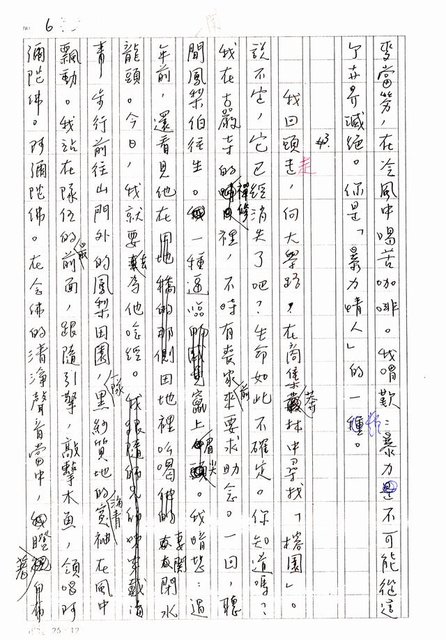 6
麥當勞，在冷風中喝苦咖啡。我喟歎：暴力是不可能從這
个世界滅絕。你是「暴力情人」的一種。
43.
我回頭走，向大學路，在商集叢林中尋找「搭園」。
說不定，它已經消失了吧？生命如此不確定。你知道嗎？
我在古嚴寺的禪修裡，不時有喪家前來要求助念。一回，聽
聞鳳梨伯往生。一種逼臨上眉尖。我暗想：過
年前，還看見他在田地裡吆喝要關閉水
龍頭。今日，我就要去為他唸經。我跟隨戴海
青一隊步行前往山門外的鳳梨田園，黑紗質地的海青在風中
飄動。我站在隊伍的最前面，跟隨引擎，敲擊木魚，領唱阿
彌陀佛。阿彌陀佛。在念佛的清淨聲音當中，瞪著白布